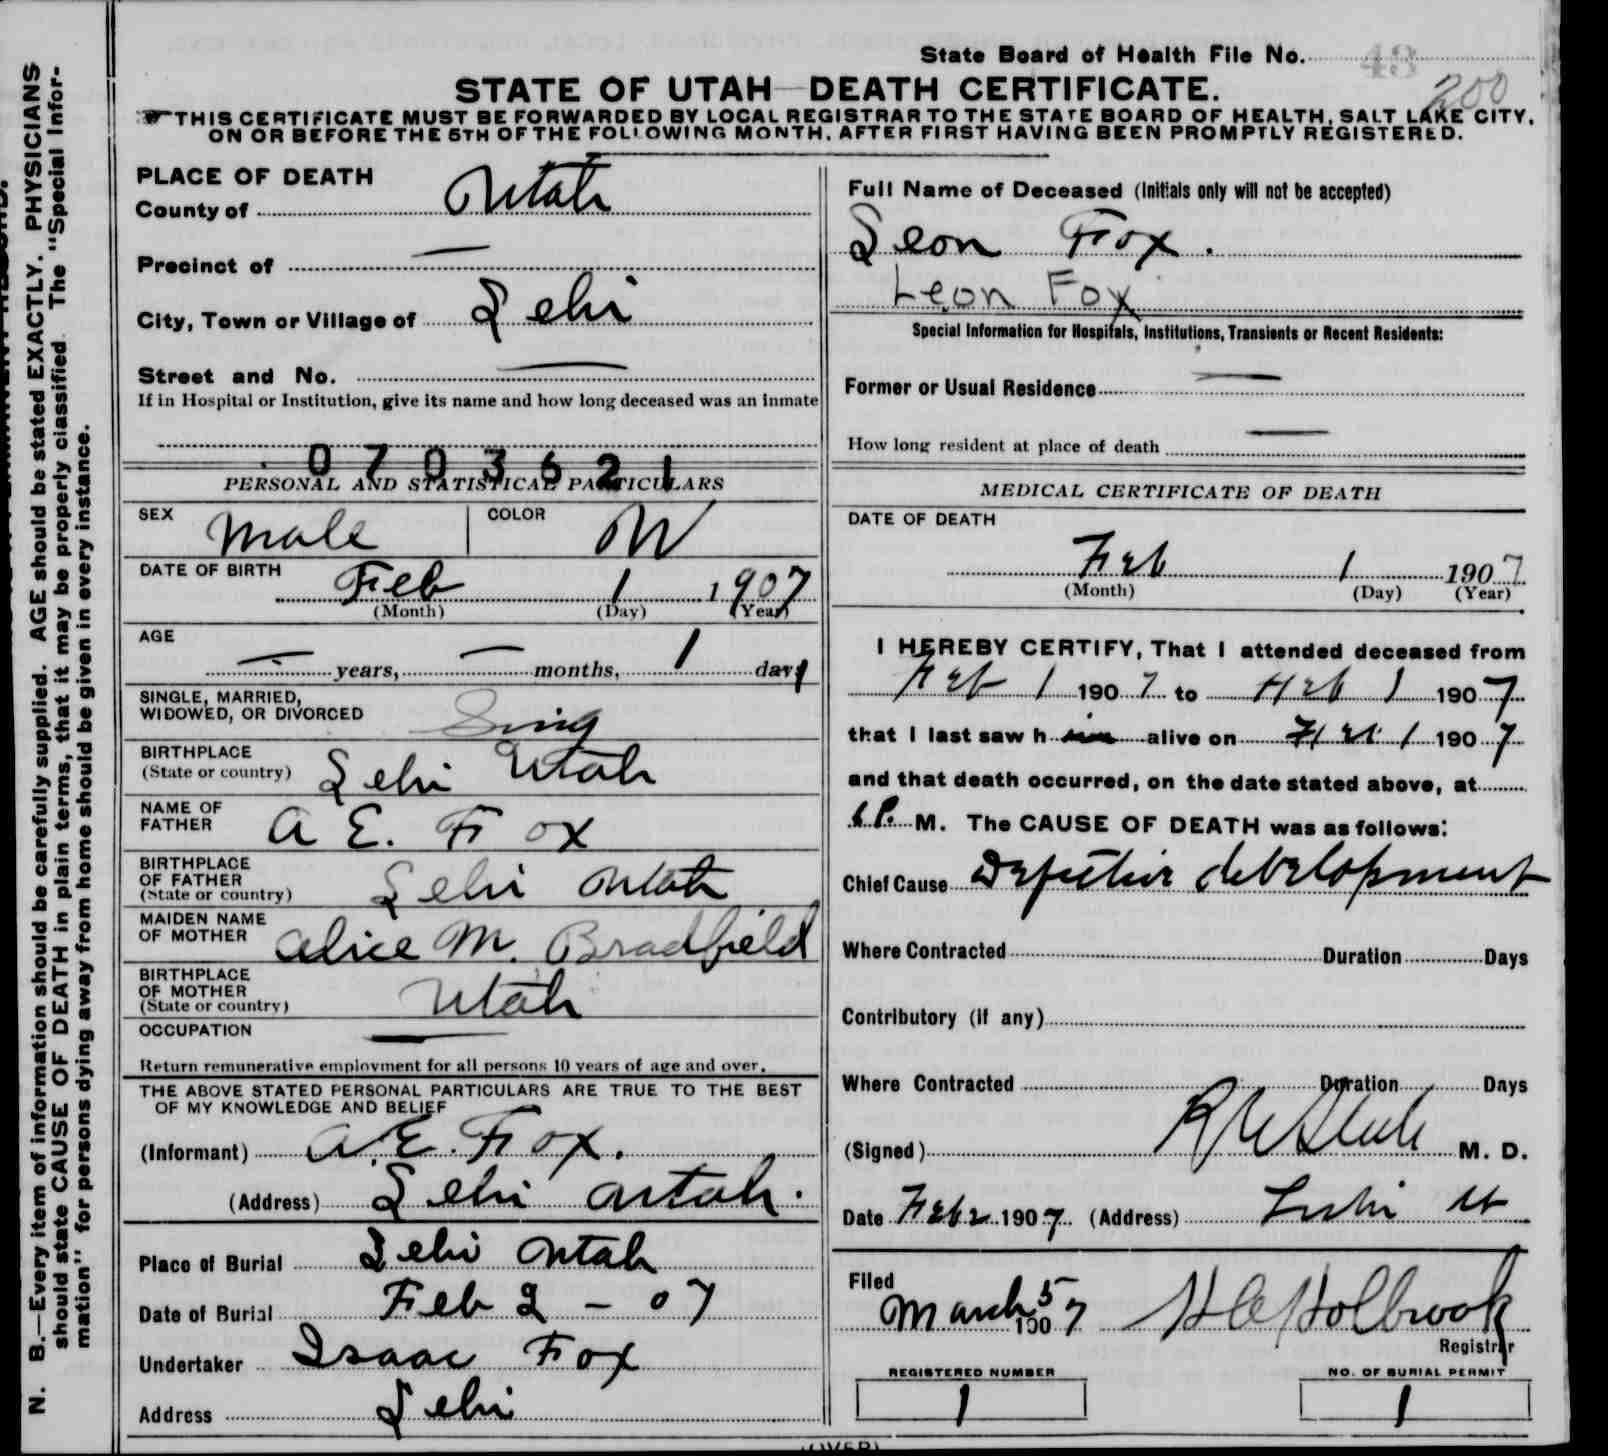 State Board of Health File No. 43
200
STATE OF UTAH—DEATH CERTIFICATE.
THIS CERTIFICATE MUST BE FORWARDED BY LOCAL REGISTRAR TO THE STATE BOARD OF HEALTH, SALT LAKE CITY,
ON OR BEFORE THE 5TH OF THE FOLLOWING MONTH, AFTER FIRST HAVING BEEN PROMPTLY REGISTERED.
N. B.—Every item of information should be carefully supplied. AGE should be stated EXACTLY. PHYSICIANS
should state CAUSE OF DEATH in plain terms, that it may be properly classified. The "Special Infor-
mation" for persons dying away from home should be given in every instance.
PLACE OF DEATH
County of Utah
Precinct of —
City, Town or Village of Lehi
Street and No. —
If in Hospital or Institution, give its name and how long deceased was an inmate
0703621
PERSONAL AND STATISTICAL PARTICULARS
SEX Male COLOR W
DATE OF BIRTH Feb 1 1907
(Month) (Day) (Year)
AGE — years, — months, 1 day
SINGLE, MARRIED,
WIDOWED, OR DIVORCED Sing
BIRTHPLACE
(State or country) Lehi Utah
NAME OF
FATHER A E. Fox
BIRTHPLACE
OF FATHER
(State or country) Lehi Utah
MAIDEN NAME
OF MOTHER Alice M. Bradfield
BIRTHPLACE
OF MOTHER
(State or country) Utah
OCCUPATION —
Return remunerative employment for all persons 10 years of age and over.
THE ABOVE STATED PERSONAL PARTICULARS ARE TRUE TO THE BEST
OF MY KNOWLEDGE AND BELIEF
(Informant) A. E. Fox.
(Address) Lehi Utah.
Place of Burial Lehi Utah
Date of Burial Feb 2 - 07
Undertaker Isaac Fox
Address Lehi
Full Name of Deceased (Initials only will not be accepted)
Leon Fox.
Leon Fox
Special Information for Hospitals, Institutions, Transients or Recent Residents:
Former or Usual Residence —
How long resident at place of death —
MEDICAL CERTIFICATE OF DEATH
DATE OF DEATH
Feb 1 1907
(Month) (Day) (Year)
I HEREBY CERTIFY, That I attended deceased from
Feb 1 1907 to Feb 1 1907
that I last saw him alive on Feb 1 1907
and that death occurred, on the date stated above, at
P. M. The CAUSE OF DEATH was as follows:
Chief Cause Defective development
Where Contracted Duration Days
Contributory (if any)
Where Contracted Duration Days
(Signed) M. D.
Date Feb 2 1907 (Address) Lehi Ut
Filed
March 5 1907 H C Holbrook
Registrar
REGISTERED NUMBER NO. OF BURIAL PERMIT
1 1
(OVER)